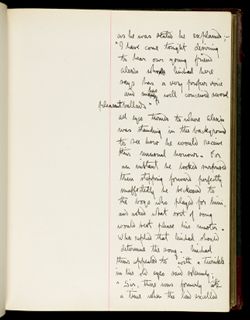 as he was seated he explained; –
"I have come tonight desiring
to hear our young friend
Alexis whom Michael here
says has a very proper voice
and will conceived several
pleasant ballads."
All eyes turned to where Alexis
was standing in the background
to see how he would receive
this unusual honour. For
an instant he looked surprised
then stepping forward perfectly
unaffectedly he beckoned to
the boys who played for him
and asked what sort of song
would best please his master.
Who replied that Michael should
determine the song. Michael
thus appealed to with a twinkle
in his old eyes said solemnly:
"Sire, there was formerly
a time when the lad excelled